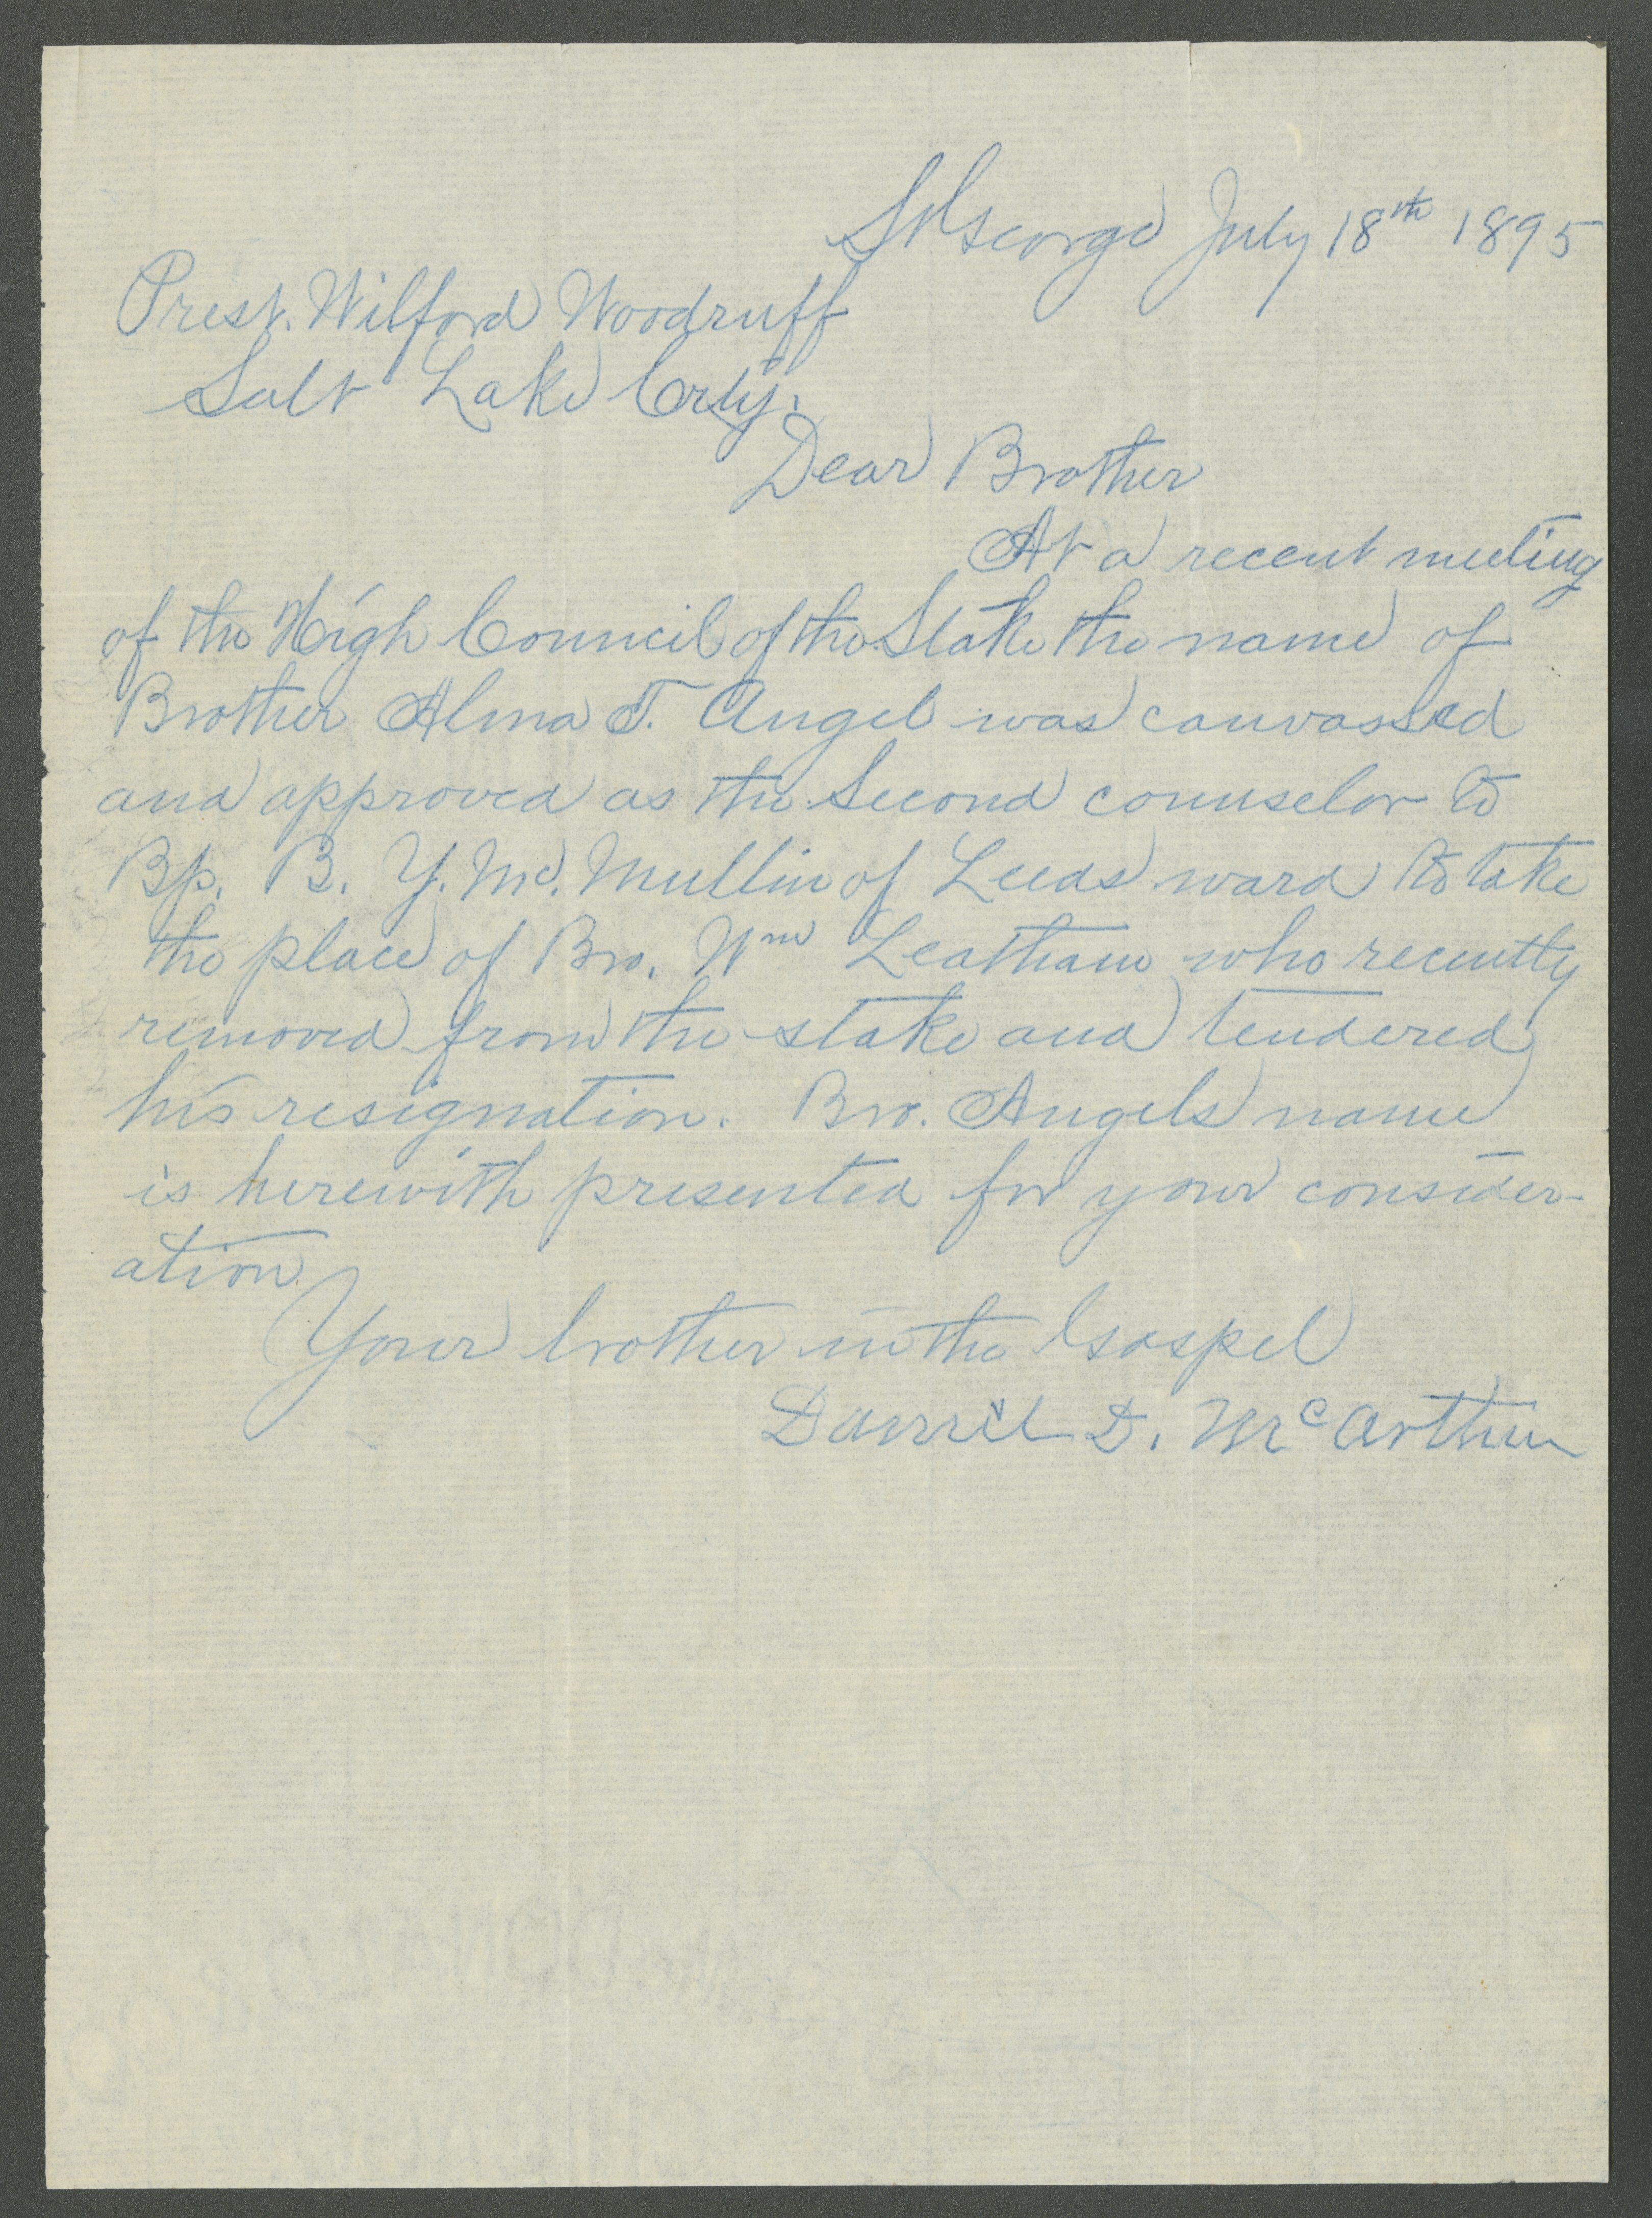 St George July 18th 1895
Prest. Wilford Woodruff
Salt Lake City.
Dear Brother
At a recent meeting
of the High Council of the Stake the name of
Brother Alma T. Angel was canvassed
and approved as the Second counselor to
Bp. B. Y. Mc. Mullin of Leeds ward to take
the place of Bro. Wm Leatham who recently
removed from the stake and tendered
his resignation. Bro. Angels name
is herewith presented for your consider-
ation.
Your brother in the Gospel
Daniel D. McArthur